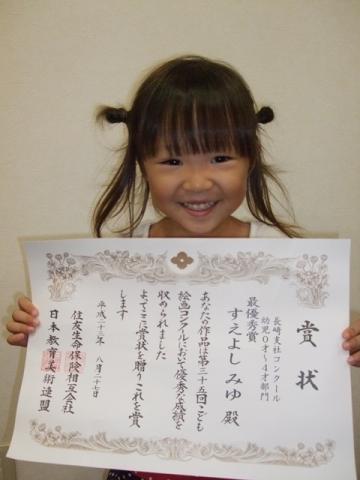 賞状
長崎支社コンクール
幼児0才〜4才部門
最優秀賞
すえよし みゆ 殿
あなたの作品は第三十五回こども
絵画コンクールにおいて優秀な成績を
収められました
よってここに賞状を贈りこれを賞
します
平成二十三年 八月二十七日
住友生命保険相互会社
日本教育美術連盟